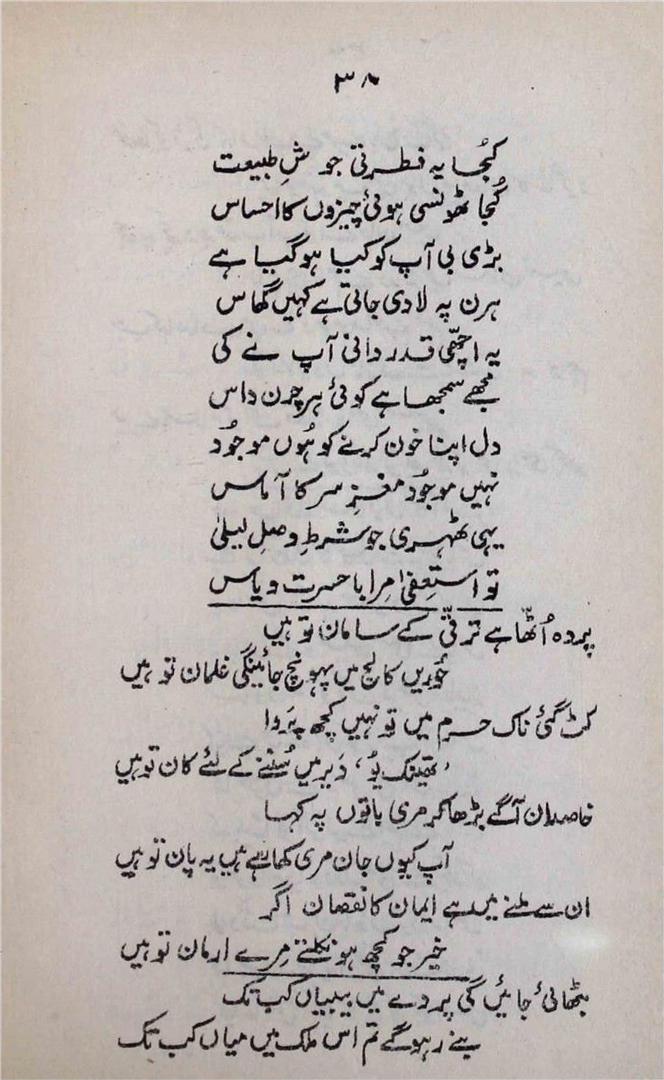 ۳۸
کُجا یہ فطرتی جوشِ طبیعت
کُجا ٹھونسی ہوئی چیزوں کا احساس
بڑی بی آپ کو کیا ہو گیا ہے
ہرن پہ لادی جاتی ہے کہیں گھاس
یہ اچھّی قدر دانی آپ نے کی
مجھے سمجھا ہے کوئی ہر چرن داس
دل اپنا خون کرنے کو ہُوں موجُود
نہیں موجُود مغزِ سر کا آماس
یہی ٹھہری جو شرطِ وصلِ لیلیٰ
تو استعفیٰ مرا با حسرت و یاس
پردہ اُٹھّا ہے ترقّی کے سامان تو ہیں
حُوریں کالج میں پہونچ جائینگی غلمان تو ہیں
کٹ گئی ناک حرم میں تو نہیں کچھ پَروا
'تھینک یُو' دَیر میں سُننے کے لئے کان تو ہیں
خاصدان آگے بڑھا کر مری باتوں پہ کہا
آپ کیوں جان مری کھا رہے ہیں یہ پان تو ہیں
ان سے ملنے میں ہے ایمان کا نقصان اگر
خیر جو کچھ ہو نکلتے مِرے ارمان تو ہیں
بٹھائی جائیں گی پردے میں بیبیاں کب تک
بنے رہو گے تم اس ملک میں میاں کب تک